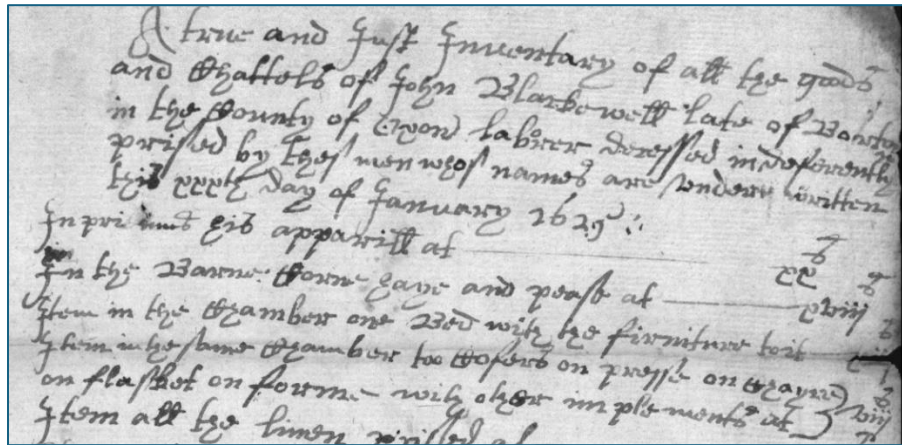 A true and Just Inventary of all the goods
and Chattels of John Blackewell late of
in the County of Oxon labrer decessed indeferently
prised by thes men whos names are under written
this xxxth day of January 1629
In primus his apparill at xx s
In the Barne Corne haye and pease at xviij s
Item in the Chamber one Bed with the firniture toit
Item in the same Chamber too Cofers on presse on Chayre
on flasket on forme with other implements at viij
Item all the linen prised at